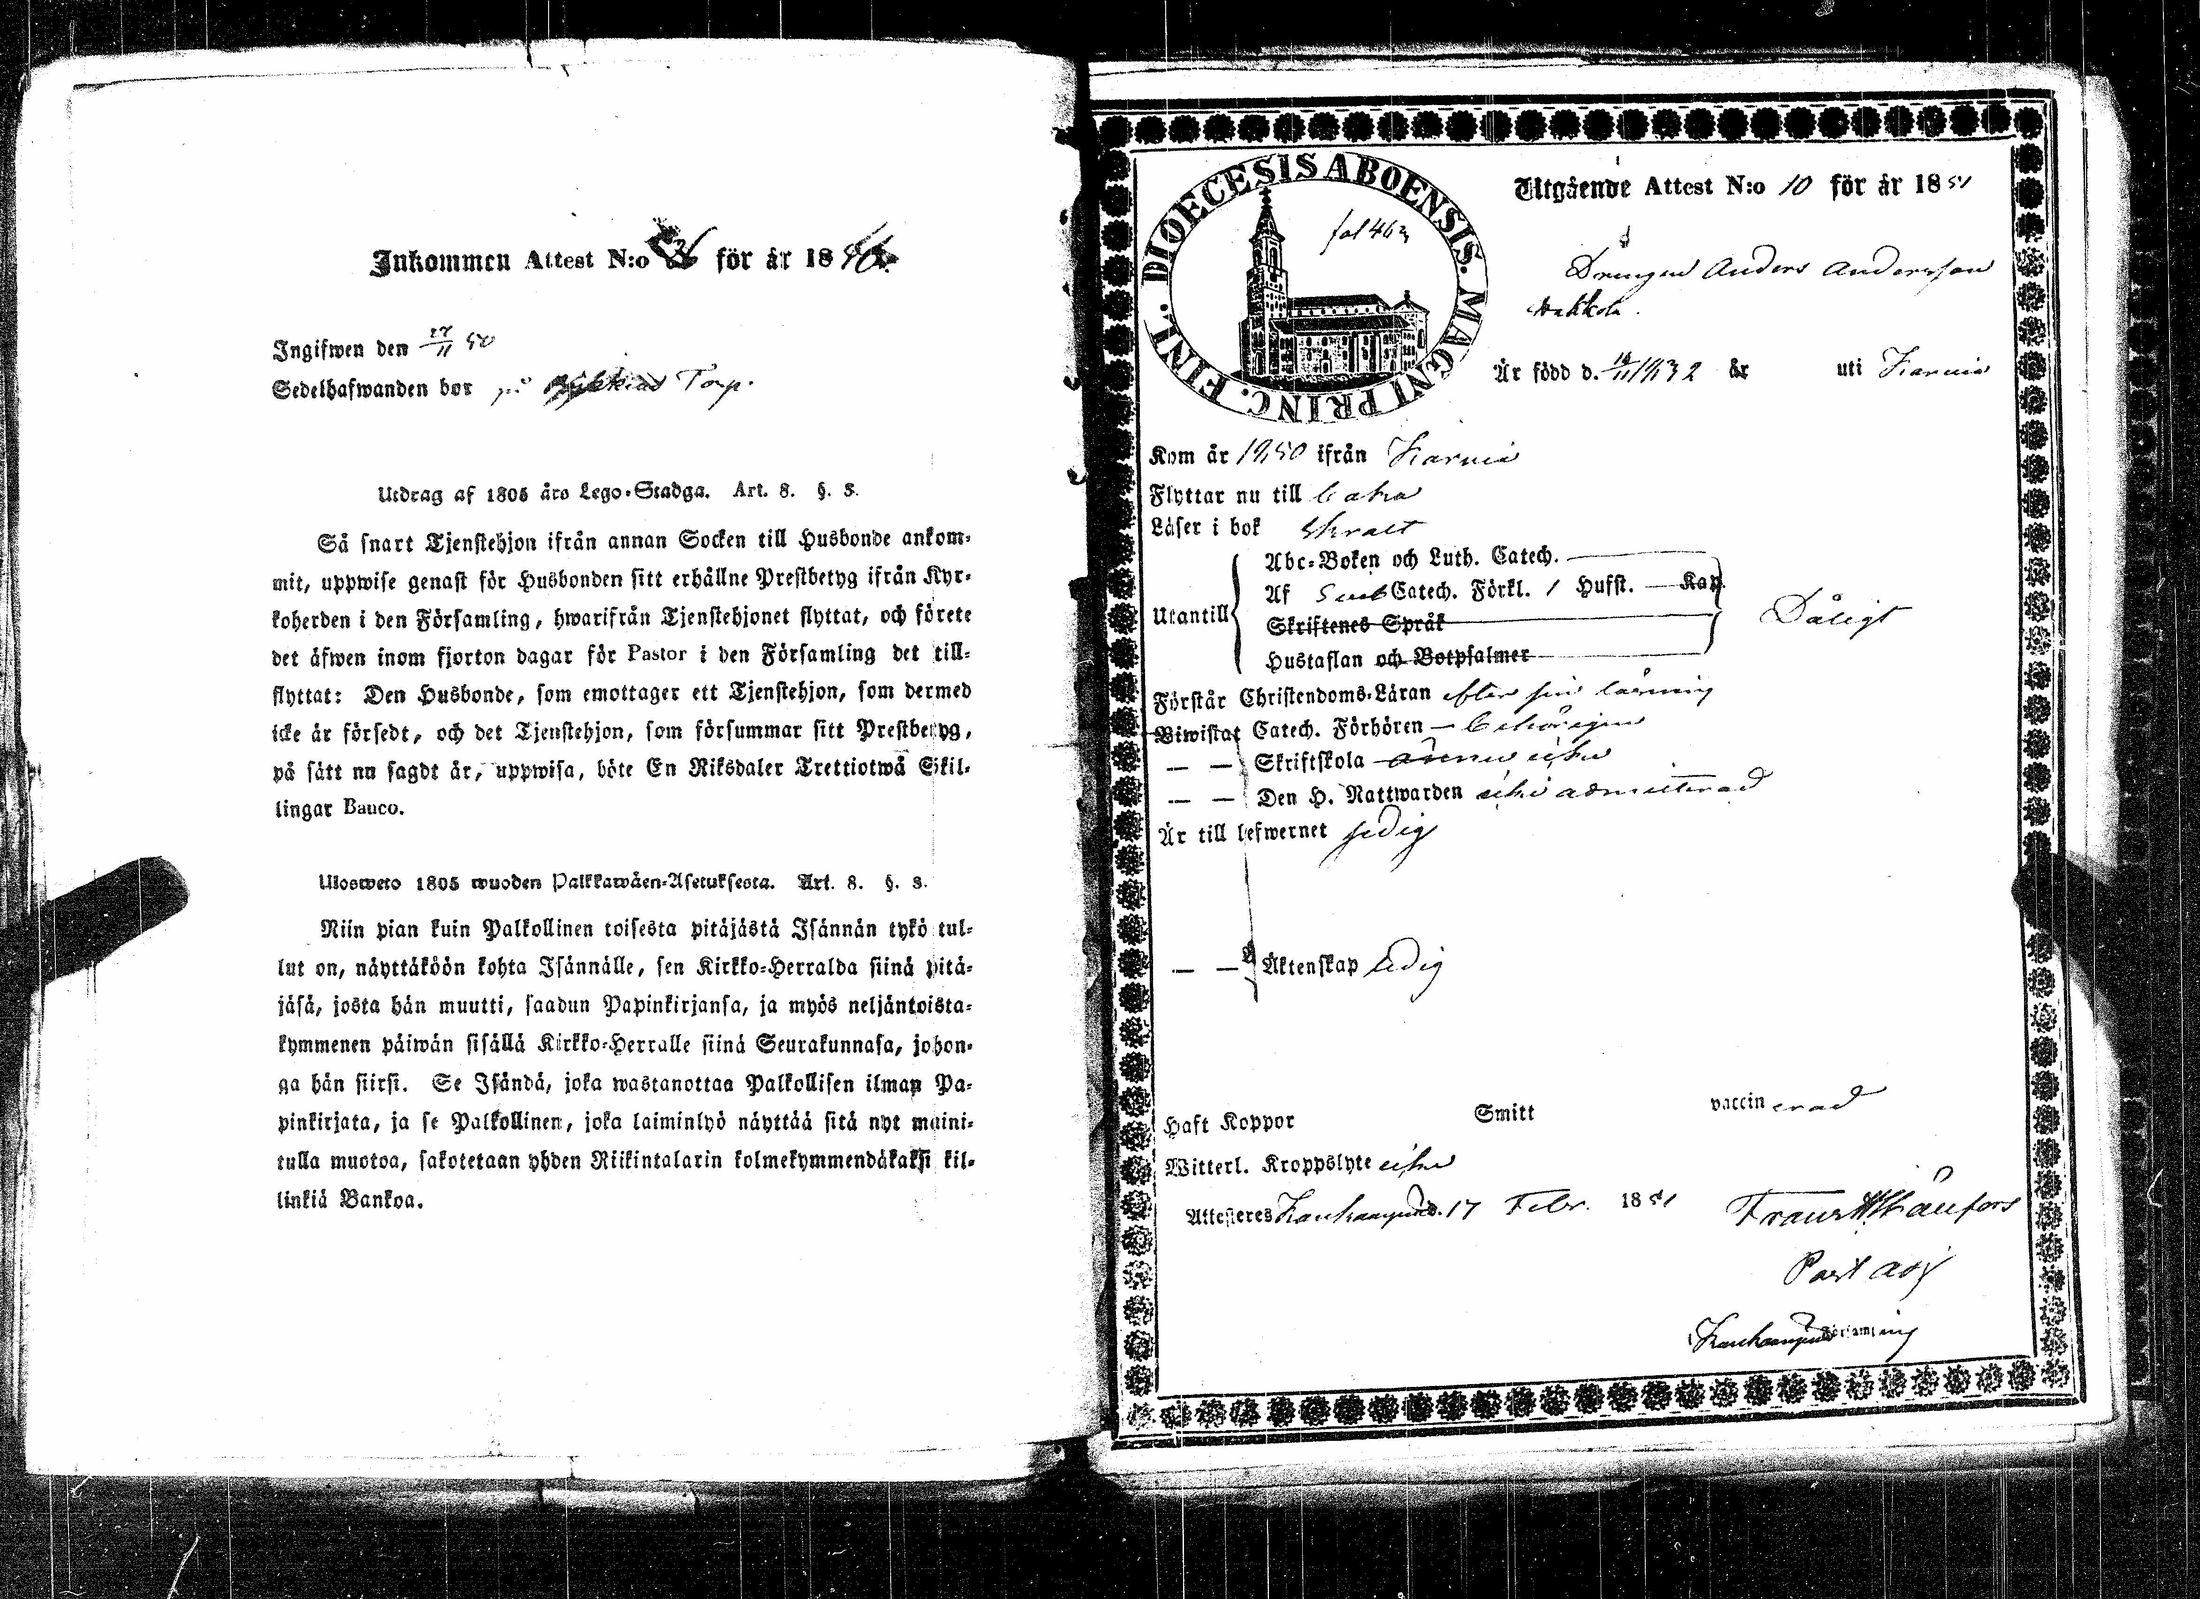 Inkommen Attest N:o för år 18
Ingifwen den 27/11 50
Sedelhafwanden bor på Torp.
Utdrag af 1805 års Lego-Stadga. Art. 8. §. 3.
Så snart Tjenstehjon ifrån annan Socken till Husbonde ankom-
mit, uppwise genast för Husbonden sitt erhållne Prestbetyg ifrån Kyr-
koherden i den Församling, hwarifrån Tjenstehjonet flyttat, och förete
det äfwen inom fjorton dagar för Pastor i den Församling det till-
flyttat: Den Husbonde, som emottager ett Tjenstehjon, som dermed
icke är försedt, och det Tjenstehjon, som försummar sitt Prestbetyg,
på sätt nu sagdt är, uppwisa, böte En Riksdaler Trettiotwå Skil-
lingar Banco.
Ulosweto 1805 wuoden Palkkawäen-Asetuksesta. Art. 8. §. 3.
Niin pian kuin Palkollinen toisesta pitäjästä Isännän tykö tul-
lut on, näyttäköön kohta Isännälle, sen Kirkko-Herralda siinä pitä-
jäsä, josta hän muutti, saadun Papinkirjansa, ja myös neljäntoista-
kymmenen päiwän sisällä Kirkko-Herralle siinä Seurakunnasa, johon-
ga hän siirsi. Se Isändä, joka wastanottaa Palkollisen ilman Pa-
pinkirjata, ja se Palkollinen, joka laiminlyö näyttää sitä nyt maini-
tulla muotoa, sakotetaan yhden Riikintalarin kolmekymmendäkaksi kil-
linkiä Bankoa.
DIOECESIS ABOENSIS. MAGNI PRINC. FINL.
fol 463
Utgående Attest N:o 10 för år 1851
Drengen Anders Andersson
Är född d. 18/11 1832 år uti Karuis
Kom år 1850 ifrån Karuis
Flyttar nu till
Läser i bok Skralt
Utantill
Abc-Boken och Luth. Catech.
Af Catech. Förkl. 1 Hufst. Kap.
Skriftenes Språk
Hustaflan och Botpsalmer
Dåligt
Förstår Christendoms-Läran efter sin läsning
Biwistat Catech. Förhören behörigen
— — Skriftskola ännu icke
— — Den H. Nattwarden icke admitterad
Är till lefwernet sedig
— — Äktenskap ledig
Haft Koppor Smitt vaccinerad
Witterl. Kroppslyte icke
Attesteres Karihaangund. 17 Febr. 1851
Past adj
församling